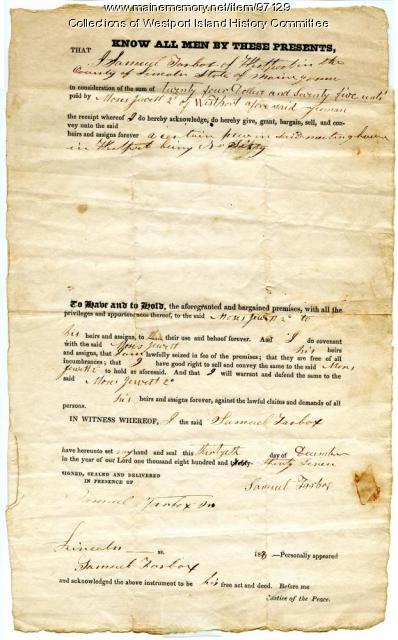 www.mainememory.net/item/97129
Collections of Westport Island History Committee
KNOW ALL MEN BY THESE PRESENTS,
THAT I Samuel Tarbox of Westport in the
County of Lincoln State of Maine
in consideration of the sum of twenty four Dollars and Seventy five cents
paid by Moses Jewett 2d of Westport afore said yeoman
the receipt whereof I do hereby acknowledge, do hereby give, grant, bargain, sell, and con-
vey unto the said
heirs and assigns forever a certain pew in said meeting house
in Westport being No Sixty
To Have and to Hold, the aforegranted and bargained premises, with all the
privileges and appurtenances thereof, to the said Moses Jewett 2d to
his heirs and assigns, to their use and behoof forever. And I do covenant
with the said Moses Jewett his heirs
and assigns, that I am lawfully seized in fee of the premises; that they are free of all
incumbrances; that I have good right to sell and convey the same to the said Moses
Jewett 2d to hold as aforesaid. And that I will warrant and defend the same to the
said Moses Jewett 2d
his heirs and assigns forever, against the lawful claims and demands of all
persons.
IN WITNESS WHEREOF, I the said Samuel Tarbox
have hereunto set my hand and seal this thirtyeth day of December
in the year of our Lord one thousand eight hundred and thirty seven
SIGNED, SEALED AND DELIVERED
IN PRESENCE OF
Samuel Tarbox
Samuel Tarbox Jr
Lincoln ss. 183 —Personally appeared
Samuel Tarbox
and acknowledged the above instrument to be his free act and deed. Before me
Justice of the Peace.